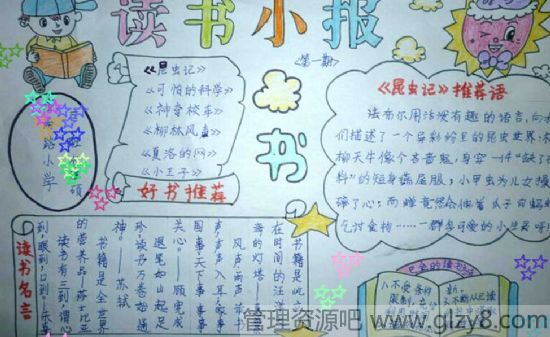 读书小报
(第一期)
《昆虫记》
《可怕的科学》
《神奇校车》
《柳林风声》
《夏洛的网》
《小王子》
好书推荐
书
《昆虫记》推荐语
法布尔用活泼有趣的语言,向
们描述了一个异彩纷呈的昆虫世界:
柳天牛像个吝啬鬼,身穿一件“缺了
料”的短身燕尾服;小甲虫为儿女操
碎了心;而蝉竟然会
乞讨食物……一群多可爱的小生灵呀
站小学
读书名言
书籍是
在时间的汪洋
海的灯塔
风声雨声读书
声声声入耳家事
国事天下事事事
关心。——顾宪成
退笔如山起足
珍读书万卷始通
神。——苏轼
书籍是全世界
的营养品—莎士比亚
读书有三到谓心
到眼到口到—朱熹
的读书方法
管理资源吧 www.glzy8.com